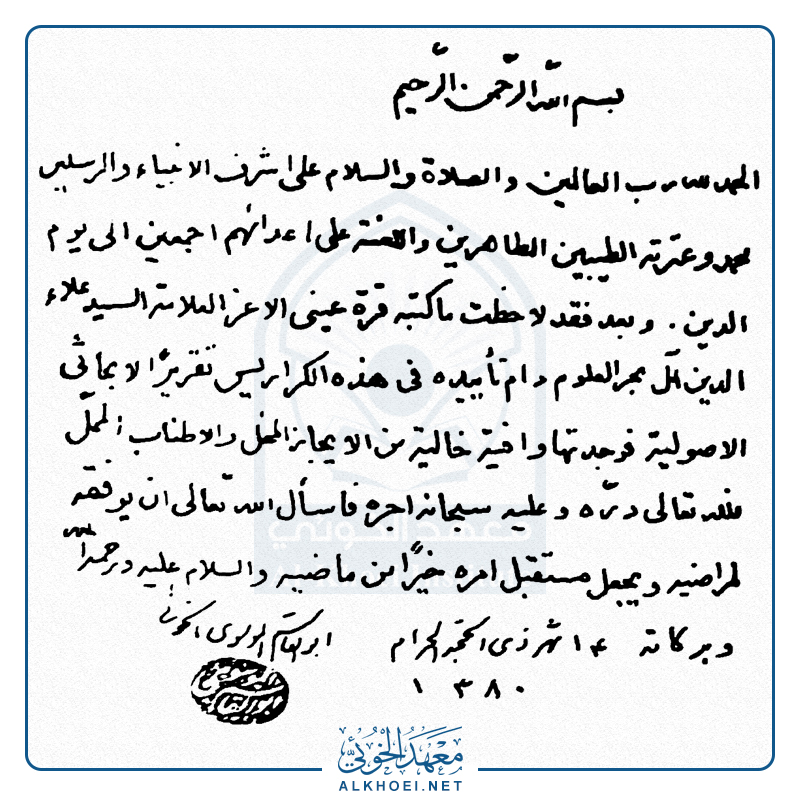 بسم الله الرحمن الرحيم
الحمد لله رب العالمين والصلاة والسلام على اشرف الانبياء والمرسلين
محمد وعترته الطيبين الطاهرين واللعنة على اعدائهم اجمعين الى يوم
الدين . وبعد فقد لاحظت ما كتبه قرة عيني الاعز العلامة السيد علاء
الدين آل بحر العلوم دام تأييده في هذه الكراريس تقريرًا لابحاثي
الاصولية فوجدتها وافية خالية من الايجاز المخل والاطناب الممل
فلله تعالى درّه وعليه سبحانه اجره فاسأل الله تعالى ان يوفقه
لمراضيه ويجعل مستقبل امره خيرًا من ماضيه والسلام عليه ورحمة الله
وبركاته ١٤ شهر ذي الحجة الحرام
١٣٨٠
ابوالقاسم الموسوي الخوئي
معهد الخوئي
معهد الخوئي
ALKHOEI.NET